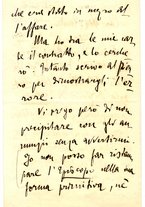 che era stato in mezzo al
l'affare.
Ma ho tra le mie car
te il contratto, e lo cerche
rò. Intanto scrivo al
per dimostrargli l'er
rore.
Vi prego però di non
precipitare con gli an
nunzii senza avvertirmi.
Io non posso far ristam
pare l'Episcopo nella sua
forma primitiva, nè